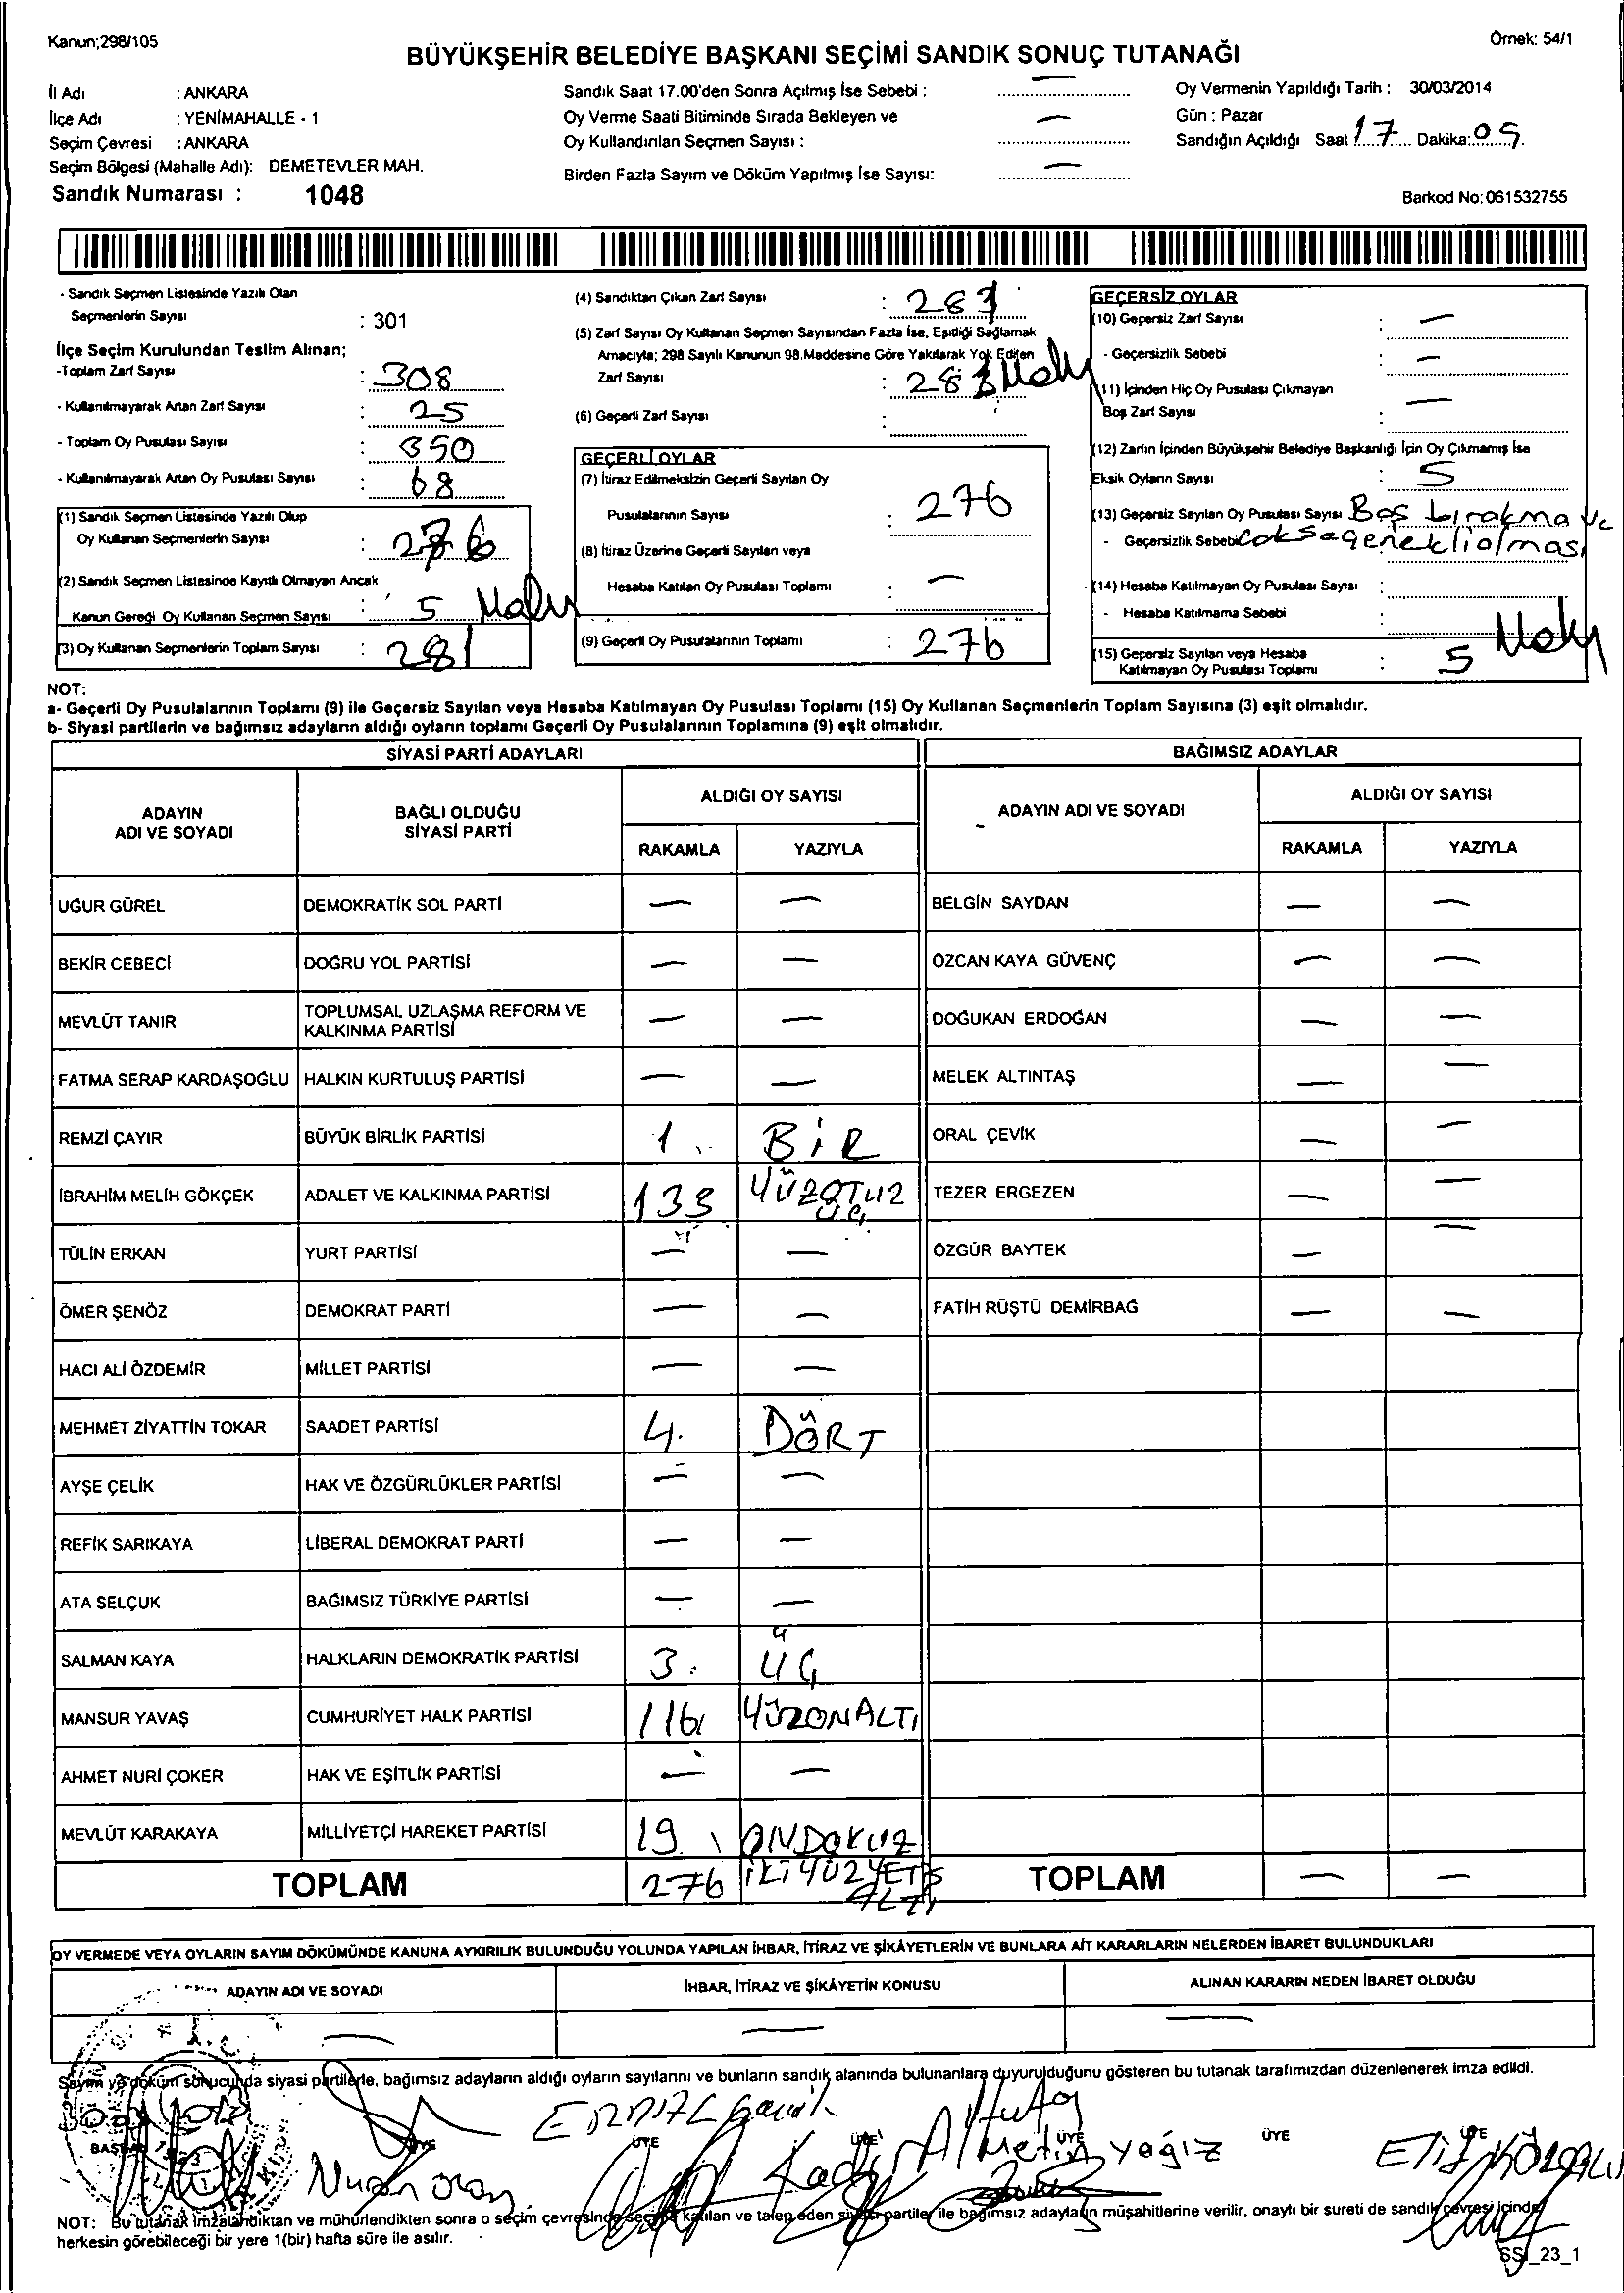 Kanun;298/105
Örnek: 54/1
BÜYÜKŞEHİR BELEDİYE BAŞKANI SEÇİMİ SANDIK SONUÇ TUTANAĞI
İl Adı : ANKARA
İlçe Adı : YENİMAHALLE - 1
Seçim Çevresi : ANKARA
Seçim Bölgesi (Mahalle Adı): DEMETEVLER MAH.
Sandık Numarası : 1048
Sandık Saat 17.00'den Sonra Açılmış İse Sebebi : —
Oy Verme Saati Bitiminde Sırada Bekleyen ve
Oy Kullandırılan Seçmen Sayısı : —
Birden Fazla Sayım ve Döküm Yapılmış İse Sayısı: —
Oy Vermenin Yapıldığı Tarih : 30/03/2014
Gün : Pazar
Sandığın Açıldığı Saat 17 Dakika: 05
Barkod No: 061532755
- Sandık Seçmen Listesinde Yazılı Olan
Seçmenlerin Sayısı : 301
İlçe Seçim Kurulundan Teslim Alınan;
-Toplam Zarf Sayısı : 308
- Kullanılmayarak Artan Zarf Sayısı : 25
- Toplam Oy Pusulası Sayısı : 350
- Kullanılmayarak Artan Oy Pusulası Sayısı : 68
(1) Sandık Seçmen Listesinde Yazılı Olup
Oy Kullanan Seçmenlerin Sayısı : 276
(2) Sandık Seçmen Listesinde Kayıtlı Olmayan Ancak
Kanun Gereği Oy Kullanan Seçmen Sayısı : 5
(3) Oy Kullanan Seçmenlerin Toplam Sayısı : 281
(4) Sandıktan Çıkan Zarf Sayısı :
(5) Zarf Sayısı Oy Kullanan Seçmen Sayısından Fazla İse, Eşitliği Sağlamak
Amacıyla; 298 Sayılı Kanunun 98.Maddesine Göre Yakılarak Yok Edilen
Zarf Sayısı :
(6) Geçerli Zarf Sayısı :
GEÇERLİ OYLAR
(7) İtiraz Edilmeksizin Geçerli Sayılan Oy
Pusulalarının Sayısı : 276
(8) İtiraz Üzerine Geçerli Sayılan veya
Hesaba Katılan Oy Pusulası Toplamı : —
(9) Geçerli Oy Pusulalarının Toplamı : 276
GEÇERSİZ OYLAR
(10) Geçersiz Zarf Sayısı : —
- Geçersizlik Sebebi : —
(11) İçinden Hiç Oy Pusulası Çıkmayan
Boş Zarf Sayısı : —
(12) Zarfın İçinden Büyükşehir Belediye Başkanlığı İçin Oy Çıkmamış İse
Eksik Oyların Sayısı : 5
(13) Geçersiz Sayılan Oy Pusulası Sayısı Boş bırakma ve
- Geçersizlik Sebebi Çok Seçenekli olması
(14) Hesaba Katılmayan Oy Pusulası Sayısı :
- Hesaba Katılmama Sebebi
(15) Geçersiz Sayılan veya Hesaba
Katılmayan Oy Pusulası Toplamı : 5
NOT:
a- Geçerli Oy Pusulalarının Toplamı (9) ile Geçersiz Sayılan veya Hesaba Katılmayan Oy Pusulası Toplamı (15) Oy Kullanan Seçmenlerin Toplam Sayısına (3) eşit olmalıdır.
b- Siyasi partilerin ve bağımsız adayların aldığı oyların toplamı Geçerli Oy Pusulalarının Toplamına (9) eşit olmalıdır.
SİYASİ PARTİ ADAYLARI BAĞIMSIZ ADAYLAR
ADAYIN ADI VE SOYADI BAĞLI OLDUĞU SİYASİ PARTİ ALDIĞI OY SAYISI ADAYIN ADI VE SOYADI ALDIĞI OY SAYISI
RAKAMLA YAZIYLA RAKAMLA YAZIYLA
UĞUR GÜREL DEMOKRATİK SOL PARTİ — — BELGİN SAYDAN — —
BEKİR CEBECİ DOĞRU YOL PARTİSİ — — ÖZCAN KAYA GÜVENÇ — —
MEVLÜT TANIR TOPLUMSAL UZLAŞMA REFORM VE KALKINMA PARTİSİ — — DOĞUKAN ERDOĞAN — —
FATMA SERAP KARDAŞOĞLU HALKIN KURTULUŞ PARTİSİ — — MELEK ALTINTAŞ — —
REMZİ ÇAYIR BÜYÜK BİRLİK PARTİSİ 1 BİR ORAL ÇEVİK — —
İBRAHİM MELİH GÖKÇEK ADALET VE KALKINMA PARTİSİ 133 YÜZOTUZ ÜÇ TEZER ERGEZEN — —
TÜLİN ERKAN YURT PARTİSİ — — ÖZGÜR BAYTEK — —
ÖMER ŞENÖZ DEMOKRAT PARTİ — — FATİH RÜŞTÜ DEMİRBAĞ — —
HACI ALİ ÖZDEMİR MİLLET PARTİSİ — —
MEHMET ZİYATTİN TOKAR SAADET PARTİSİ 4. DÖRT
AYŞE ÇELİK HAK VE ÖZGÜRLÜKLER PARTİSİ — —
REFİK SARIKAYA LİBERAL DEMOKRAT PARTİ — —
ATA SELÇUK BAĞIMSIZ TÜRKİYE PARTİSİ — —
SALMAN KAYA HALKLARIN DEMOKRATİK PARTİSİ 3. ÜÇ
MANSUR YAVAŞ CUMHURİYET HALK PARTİSİ 116 YÜZONALTI
AHMET NURİ ÇOKER HAK VE EŞİTLİK PARTİSİ — —
MEVLÜT KARAKAYA MİLLİYETÇİ HAREKET PARTİSİ 19 ONDOKUZ
TOPLAM 276 İKİYÜZYETMİŞ ALTI TOPLAM — —
OY VERMEDE VEYA OYLARIN SAYIM DÖKÜMÜNDE KANUNA AYKIRILIK BULUNDUĞU YOLUNDA YAPILAN İHBAR, İTİRAZ VE ŞİKÂYETLERİN VE BUNLARA AİT KARARLARIN NELERDEN İBARET BULUNDUKLARI
ADAYIN ADI VE SOYADI İHBAR, İTİRAZ VE ŞİKÂYETİN KONUSU ALINAN KARARIN NEDEN İBARET OLDUĞU
— — —
Sayım ve döküm sonucunda siyasi partilerle, bağımsız adayların aldığı oyların sayılarını ve bunların sandık alanında bulunanlara duyurulduğunu gösteren bu tutanak tarafımızdan düzenlenerek imza edildi.
BAŞKAN ÜYE ÜYE ÜYE ÜYE ÜYE ÜYE
Metin yağız
NOT: Bu tutanak imzalandıktan ve mühürlendikten sonra o seçim çevresinde seçime katılan ve talep eden siyasi partiler ile bağımsız adayların müşahitlerine verilir, onaylı bir sureti de sandık çevresi içinde
herkesin görebileceği bir yere 1(bir) hafta süre ile asılır.
SSI_23_1